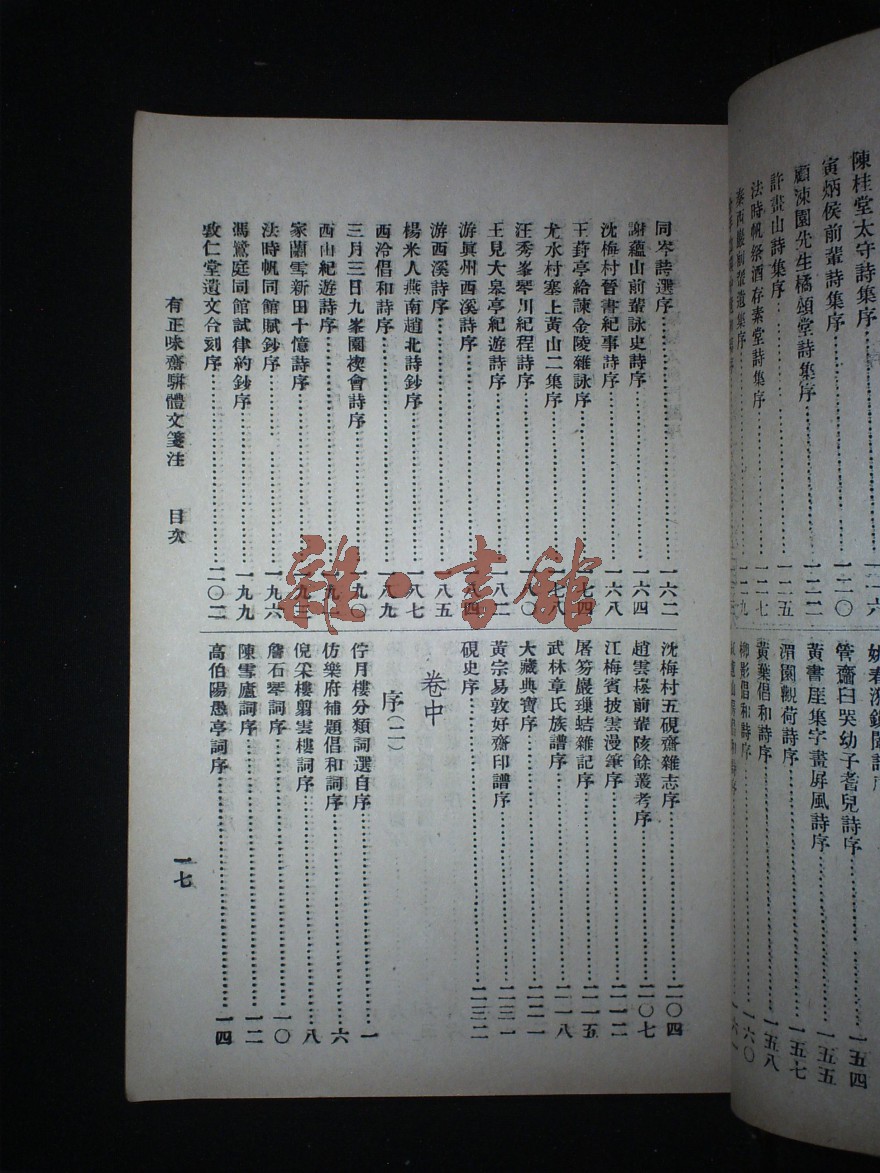 陳桂堂太守詩集序⋯⋯一一六
寅炳侯前輩詩集序⋯⋯一二〇
顧涑園先生橘頌堂詩集序⋯⋯一二二
許畫山詩集序⋯⋯一二五
法時帆祭酒存素堂詩集序⋯⋯一二七
管齋臼哭幼子耆兒詩序⋯⋯一五四
黃書厓集字畫屏風詩序⋯⋯一五五
渭園觀荷詩序⋯⋯一五七
黃葉倡和詩序⋯⋯一五八
柳影倡和詩序⋯⋯一六〇
同岑詩選序⋯⋯一六二
謝蘊山前輩詠史詩序⋯⋯一六四
沈梅村晉書紀事詩序⋯⋯一六八
王葑亭給諫金陵雜詠序⋯⋯一七四
尤水村塞上黃山二集序⋯⋯一七八
汪秀峯琴川紀程詩序⋯⋯一八〇
王見大泉亭紀遊詩序⋯⋯一八二
游眞州西溪詩序⋯⋯一八四
游西溪詩序⋯⋯一八五
楊米人燕南趙北詩鈔序⋯⋯一八七
西泠倡和詩序⋯⋯一八九
三月三日九峯園禊會詩序⋯⋯一九〇
西山紀遊詩序⋯⋯一九一
家蘭雪新田十憶詩序⋯⋯一九三
法時帆同館賦鈔序⋯⋯一九六
馮鷺庭同館試律約鈔序⋯⋯一九九
敦仁堂遺文合刻序⋯⋯二〇二
沈梅村五硯齋雜志序⋯⋯二〇四
趙雲崧前輩陔餘叢考序⋯⋯二〇七
江梅賓披雲漫筆序⋯⋯二一二
屠笏巖瓊蛣雜記序⋯⋯二一五
武林章氏族譜序⋯⋯二一八
大藏典寶序⋯⋯二二一
黃宗易敦好齋印譜序⋯⋯二三一
硯史序⋯⋯二三二
卷中
序(二)
佇月樓分類詞選自序⋯⋯一
仿樂府補題倡和詞序⋯⋯六
倪采樓翦雲樓詞序⋯⋯八
詹石琴詞序⋯⋯一〇
陳雪廬詞序⋯⋯一二
高伯陽愚亭詞序⋯⋯一四
有正味齋駢體文箋注 目次 一七
雜·書館